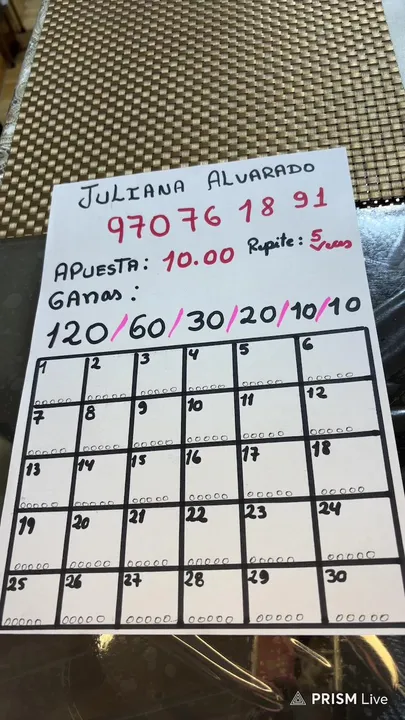 JULIANA ALVARADO
970 76 18 91
APUESTA: 10.00 Repite: 5 veces
GANAS:
120/60/30/20/10/10
1 2 3 4 5 6
7 8 9 10 11 12
13 14 15 16 17 18
19 20 21 22 23 24
25 26 27 28 29 30
PRISM Live